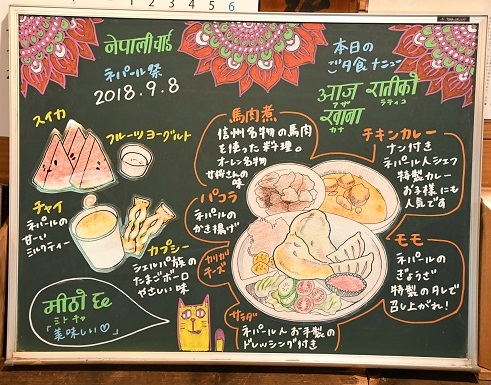 4 5 6
नेपाली चार्ड
ネパール祭
2018.9.8
本日の
ご夕食メニュー
आज रातीको
アザ ラティコ
खाना
カナ
スイカ
フルーツヨーグルト
チャイ
ネパールの
甘〜い
ミルクティー
カプシー
シェルパ族の
たまごボーロ
やさしい味
मीठो छ
ミトチャ
「美味しい♡」
馬肉煮
信州名物の馬肉
を使った料理。
オーレン名物
女将さんの
味
パコラ
ネパールの
かき揚げ
カリカリ
チーズ
サラダ
ネパール人お手製の
ドレッシング付き
チキンカレー
ナン付き
ネパール人シェフ
特製カレー
お子様にも
人気です
モモ
ネパールの
ぎょうざ
特製のタレで
召し上がれ!